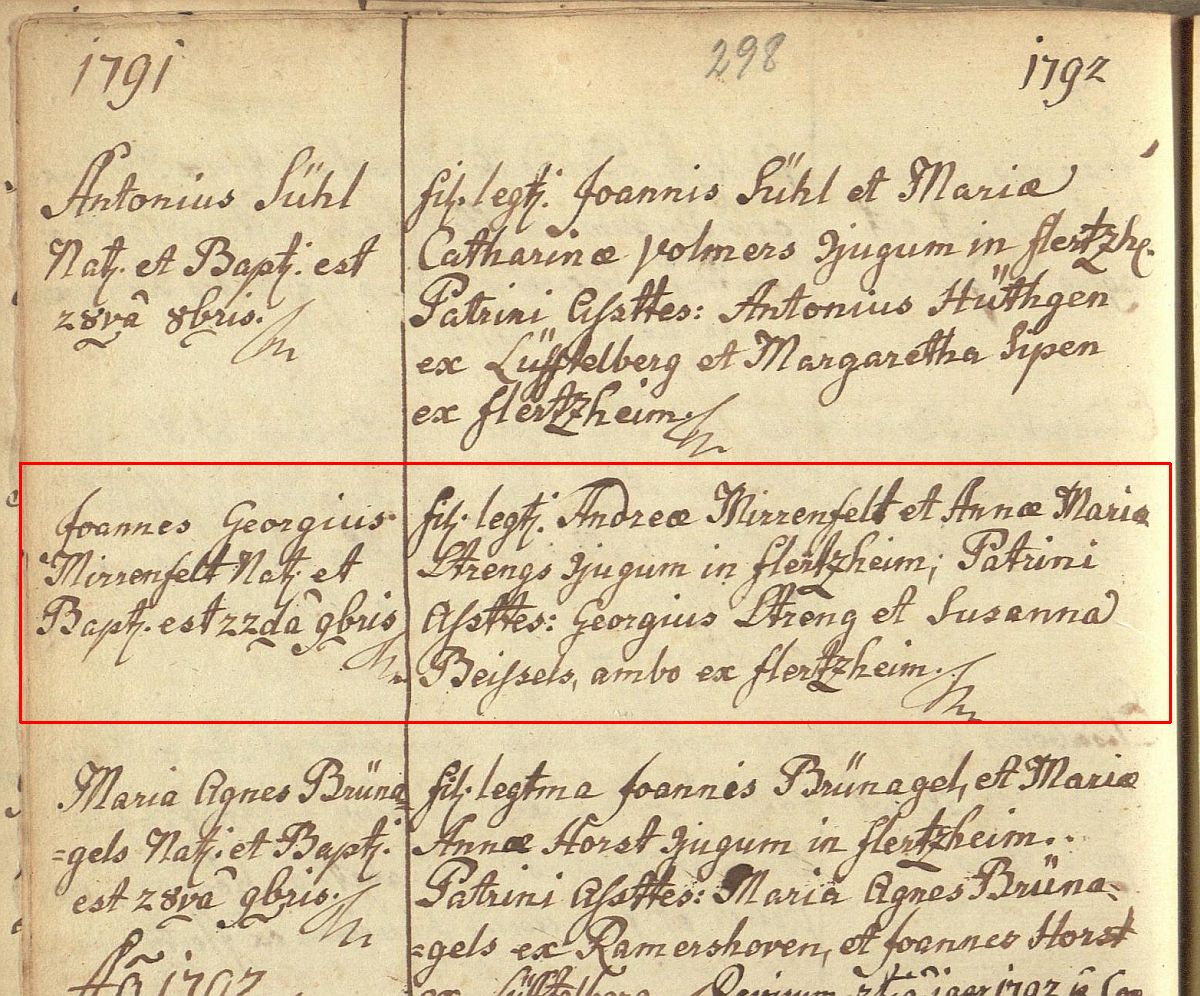 1791
298
1792
Antonius Sühl
Natj. et Baptj. est
28vâ 8bris.
filj. legtj. Joannis Sühl et Mariæ
Catharinæ Volmers Jjugum in flertzh.
Patrini Assttes: Antonius Hüthgen
ex Lüfftelberg et Margaretha Sipen
ex flertzheim.
Joannes Georgius
Mirrenfelt Natj. et
Baptj. est 22dâ 9bris
filj. legtj. Andreæ Mirrenfelt et Annæ Mariæ
Strengs Jjugum in flertzheim; Patrini
Assttes: Georgius Streng et Susanna
Beissels, ambo ex flertzheim.
Maria Agnes Brüna=
=gels Natj. et Baptj.
est 28vâ 9bris.
filj. legtma Joannis Brünagel, et Mariæ
Annæ Horst Jjugum in flertzheim..
Patrini Assttes: Maria Agnes Brüna=
=gels ex Ramershoven, et Joannes Horst
1792
ex Lüfftelberg